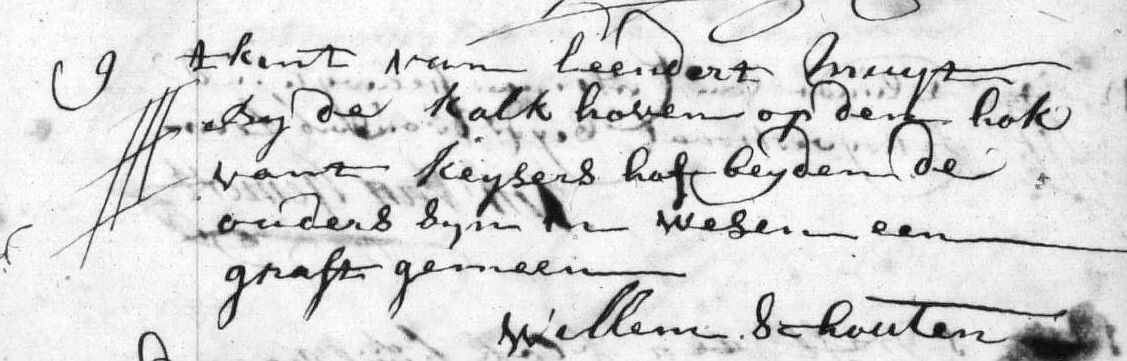 9 tkint van leendert Snuyt
By de kalk hoven op den hok
vant keysers hof beyden de
ouders syn in wesen een
graft gemeen
Willem Schouten